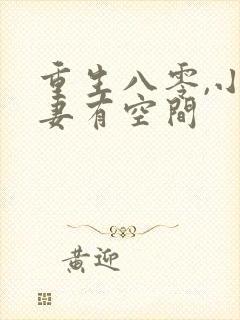 重生八零,小
妻有空間
黄迎